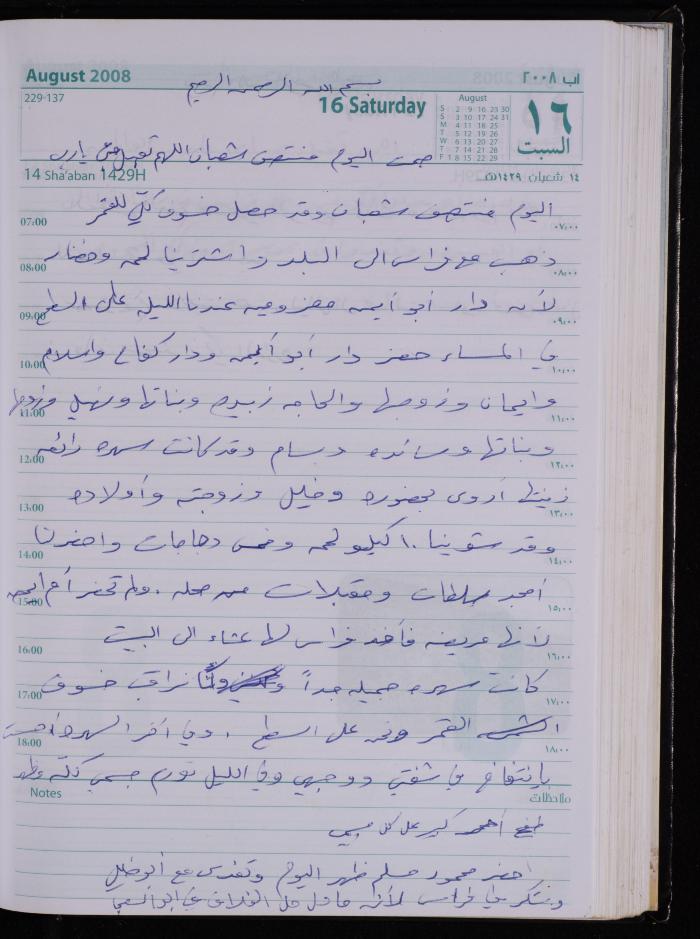 August 2008
اب ٢٠٠٨
بسم الله الرحمن الرحيم
229-137
16 Saturday
August
S 2 9 16 23 30
S 3 10 17 24 31
M 4 11 18 25
T 5 12 19 26
W 6 13 20 27
T 7 14 21 28
F 1 8 15 22 29
١٦
السبت
صمت اليوم منتصف شعبان اللهم تقبل مني يا رب
14 Sha'aban 1429H
١٤ شعبان ١٤٢٩هـ
اليوم منتصف شعبان وقد حصل خسوف كلي للقمر
07:00 ٠٧:٠٠
ذهبت مع فراس الى البلد واشترينا لحمه وخضار
08:00 ٠٨:٠٠
لأنه دار ابو أيمن معزومين عندنا الليله على السطح
09:00 ٠٩:٠٠
في المساء حضر دار أبو أيمن ودار كفاح واسلام
10:00 ١٠:٠٠
وايمان وزوجها والحاجه زبيده وبناتها وسهيل وزوجها
11:00 ١١:٠٠
وبناتها وسائده وبسام وقد كانت سهره رائعه
12:00 ١٢:٠٠
زينتها أروى بحضوره وخليل وزوجته وأولاده
13:00 ١٣:٠٠
وقد شوينا ١٠ كيلو لحمه وخمس دجاجات واحضرنا
14:00 ١٤:٠٠
أمجد سلطات ومقبلات من محله . ولم تحضر أم أيمن
15:00 ١٥:٠٠
لأنها مريضه فأخذ فراس لها عشاء الى البيت
16:00 ١٦:٠٠
كانت سهره جميله جداً وكنا نراقب خسوف
17:00 ١٧:٠٠
القمر ونحن على السطح . وفي آخر السهره أحسست
18:00 ١٨:٠٠
بإنتفاخ في شفتي ووجهي وفي الليل تورم جسمي كله وظهر
Notes ملاحظات
طفح أحمر كبير على كل جسمي
احضر محمود مسلم ظهر اليوم وتغدى مع ابو خليل